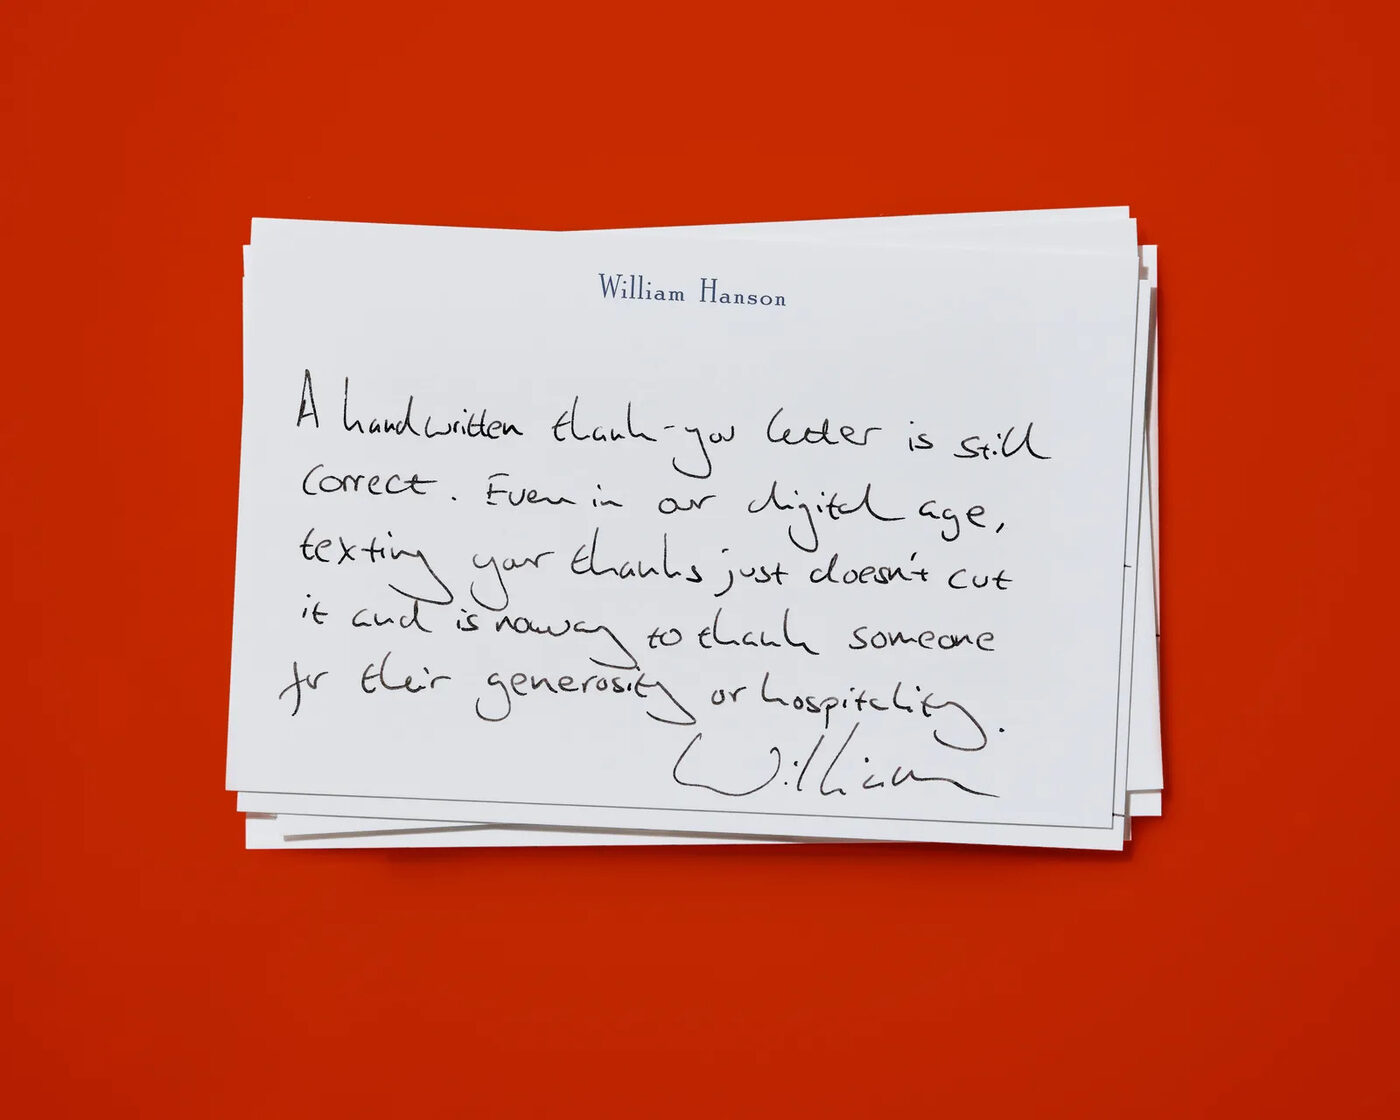 William Hanson
A handwritten thank-you letter is still
correct. Even in our digital age,
texting your thanks just doesn't cut
it and is no way to thank someone
for their generosity or hospitality.
William